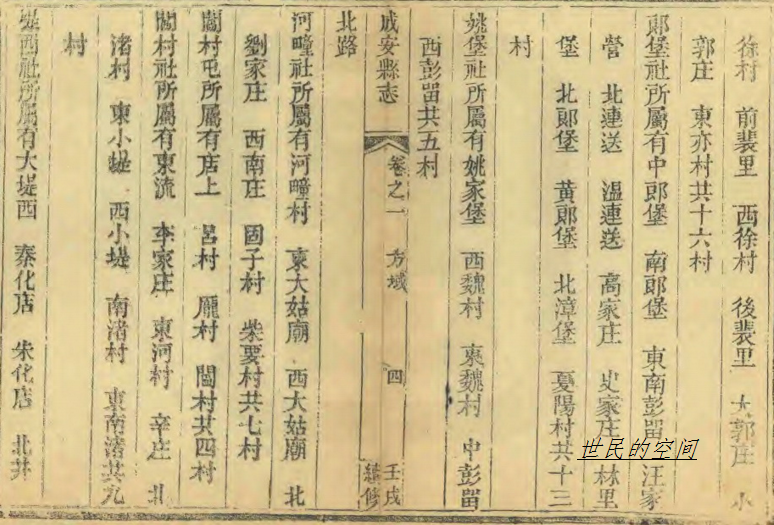 徐村　前裴里　西徐村　後裴里　大郭庄　小
郭庄　東亦村共十六村
郎堡社所屬有中郎堡　南郎堡　東南彭留　汪家
營　北連送　溫連送　高家庄　史家庄　林里
堡　北郎堡　黃郎堡　北漳堡　夏陽村共十三
村
姚堡社所屬有姚家堡　西魏村　東魏村　中彭留
西彭留共五村
成安縣志　卷之一　方域　四　壬戌續修
北路
河疃社所屬有河疃村　東大姑廟　西大姑廟　北
劉家庄　西南庄　固子村　柴要村共七村
閻村屯所屬有店上　呂村　龐村　閻村共四村
閻村社所屬有東流　李家庄　東河村　辛庄　北
渚村　東小堤　西小堤　南渚村　東南渚共九
村
堤西社所屬有大堤西　秦化店　朱化店　北井
世民的空间